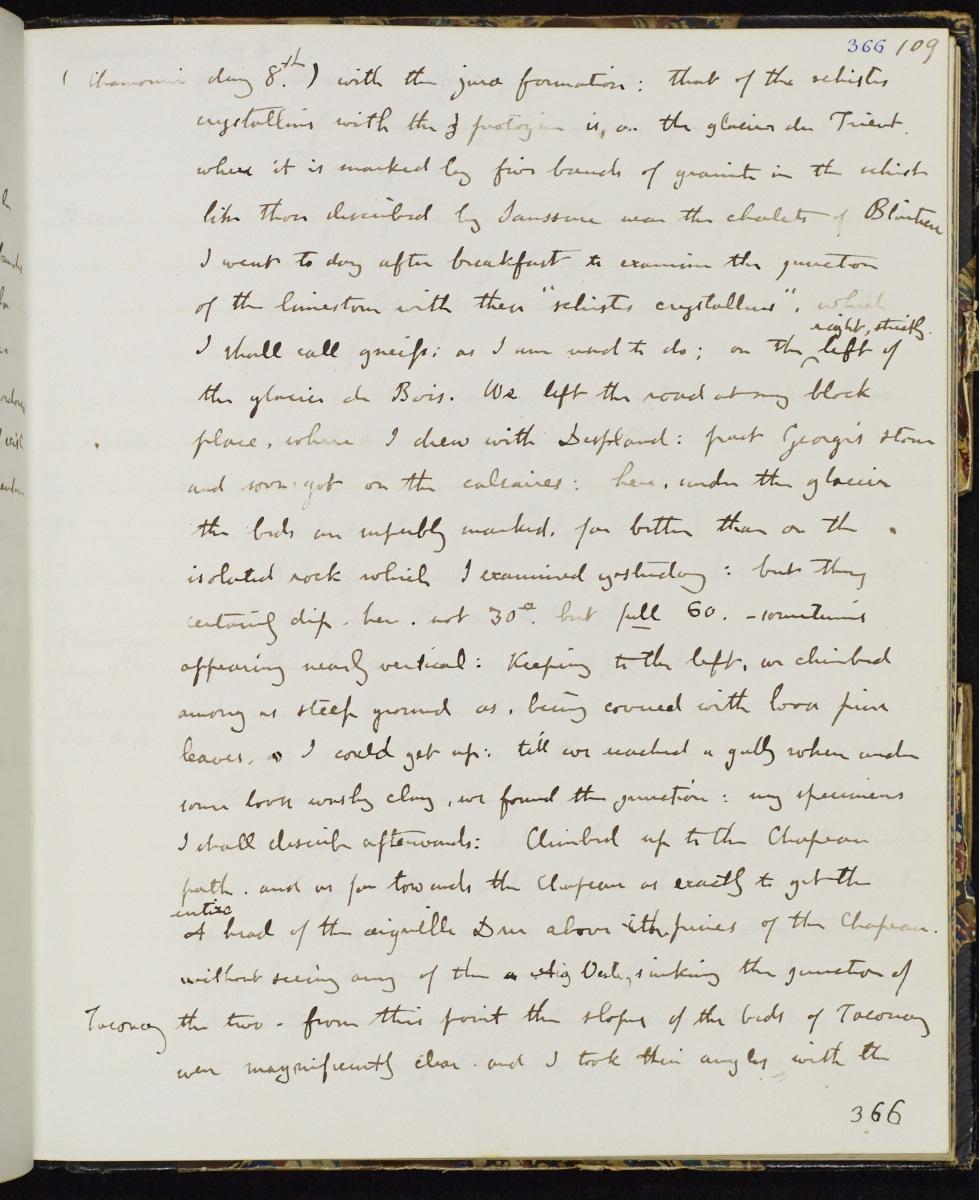 366 109
( Chamouni day 8th. ) with the jura formation: that of the schistes
crystallins with the protogine is, on the glacier du Trient.
where it is marked by five bands of granite in the schist
like those described by Saussure near the chalets of Blaitiere
I went to day after breakfast to examine the junction
of the limestone with these "schistes crystallins", which
right, strictly.
I shall call gneiss: as I am used to do; on the left of
the glacier de Bois. We left the road at my block
place, where I drew with Despland: past George's stone
and soon got on the calcaires: here, under the glacier
the beds are superbly marked, far better than on the
isolated rock which I examined yesterday: but they
certainly dip. here. not 30°. but full 60. - sometimes
appearing nearly vertical: Keeping to the left, we climbed
among as steep ground as, being covered with loose pine
leaves, I could get up: till we reached a gully where under
some loose washy clay, we found the junction: my specimens
I shall describe afterwards: Climbed up to the Chapeau
path. and as far towards the Chapeau as exactly to get the
entire
head of the aiguille Dru above the pines of the Chapeau.
without seeing any of the Aig Verte, sinking the junction of
Taconay the two. From this point the slopes of the beds of Taconay
were magnificently clear. and I took their angles with the
366